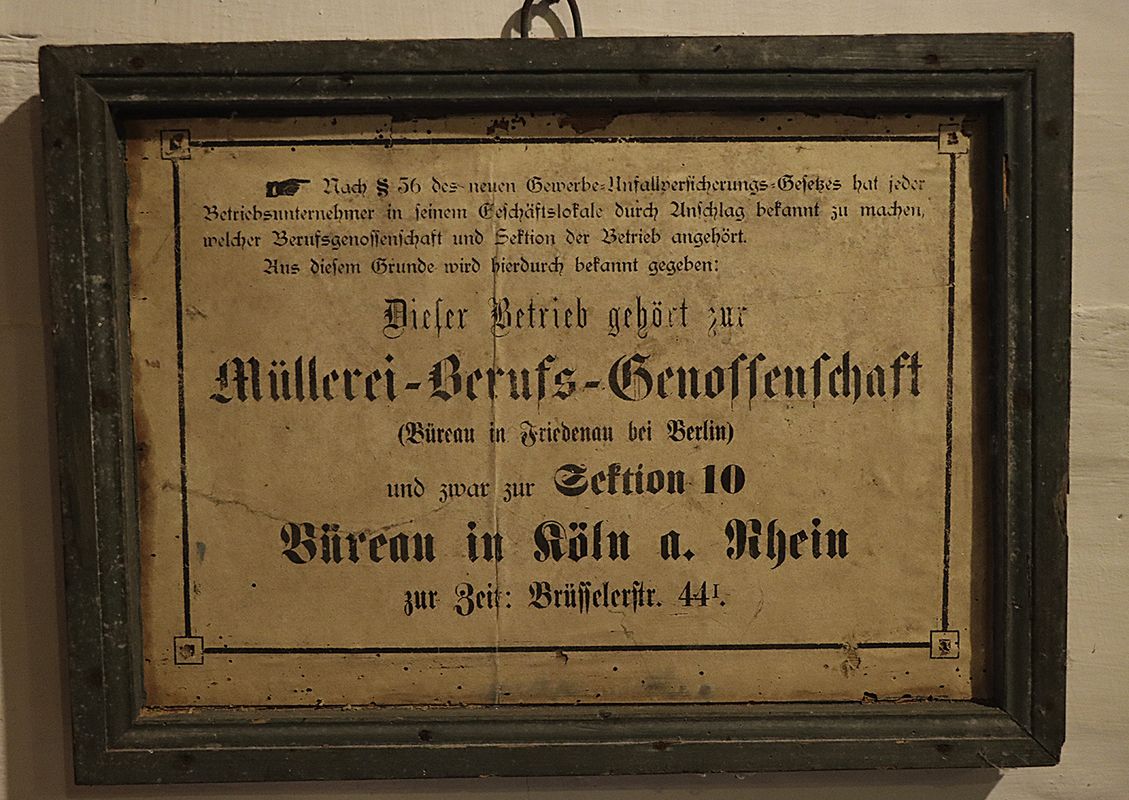 ☛ Nach § 56 des neuen Gewerbe-Unfallversicherungs-Gesetzes hat jeder
Betriebsunternehmer in seinem Geschäftslokale durch Anschlag bekannt zu machen,
welcher Berufsgenossenschaft und Sektion der Betrieb angehört.
Aus diesem Grunde wird hierdurch bekannt gegeben:
Dieser Betrieb gehört zur
Müllerei-Berufs-Genossenschaft
(Büreau in Friedenau bei Berlin)
und zwar zur Sektion 10
Büreau in Köln a. Rhein
zur Zeit: Brüsselerstr. 44I.